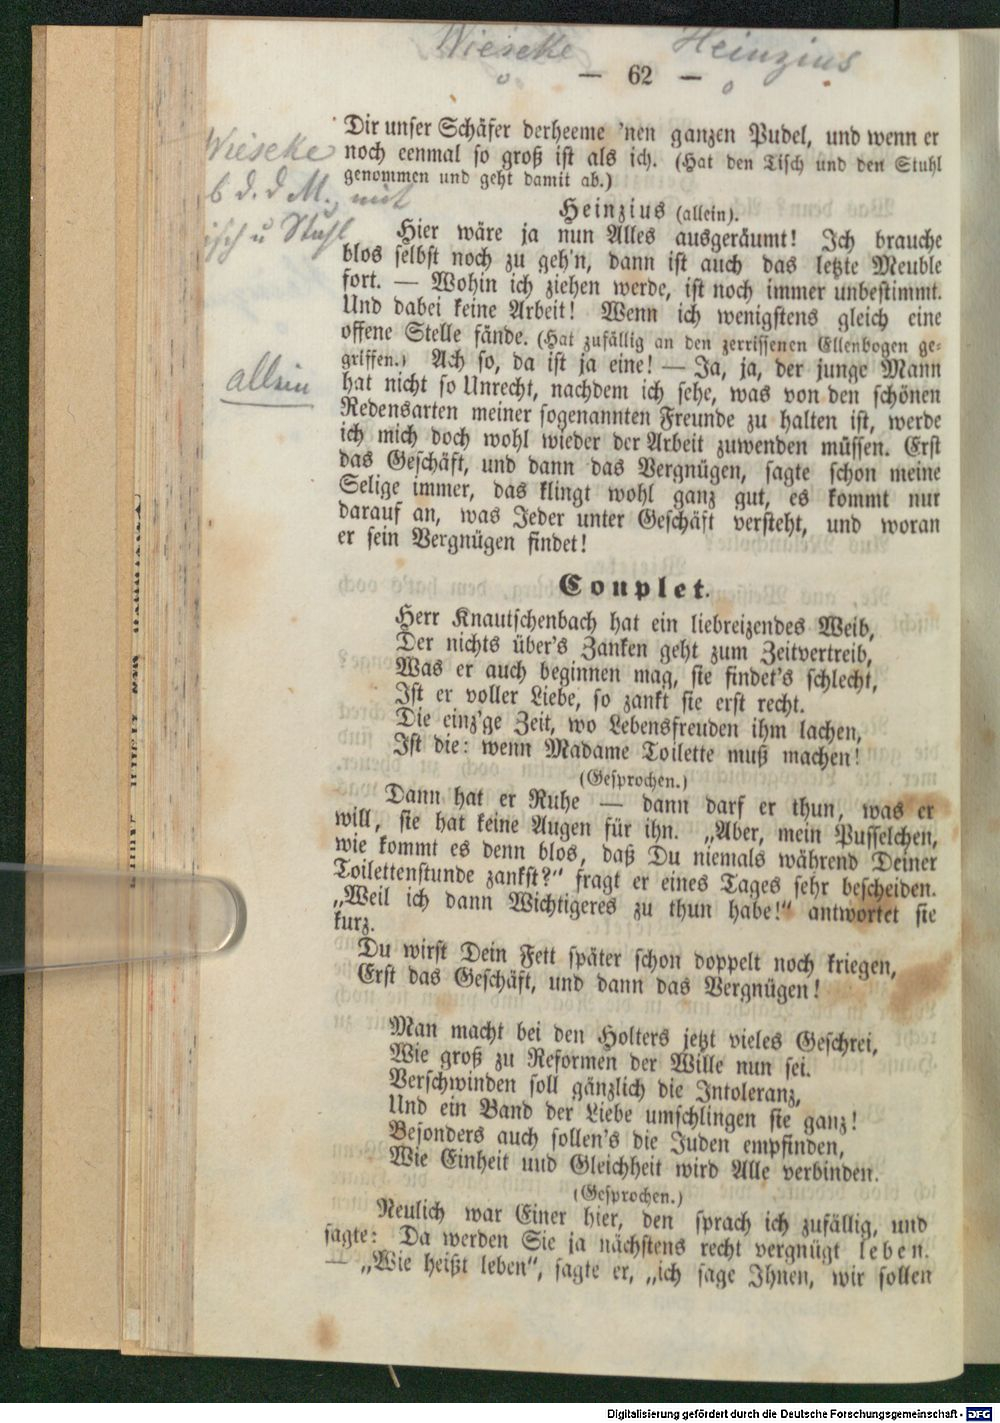 Wieseke Heinzius
— 62 —
Dir unser Schäfer derheeme 'nen ganzen Pudel, und wenn er
noch eenmal so groß ist als ich. (Hat den Tisch und den Stuhl
genommen und geht damit ab.)
Wieseke
b. d. d. M. mit
isch u Stuhl
Heinzius (allein).
Hier wäre ja nun Alles ausgeräumt! Ich brauche
blos selbst noch zu geh'n, dann ist auch das letzte Meuble
fort. — Wohin ich ziehen werde, ist noch immer unbestimmt.
Und dabei keine Arbeit! Wenn ich wenigstens gleich eine
offene Stelle fände. (Hat zufällig an den zerrissenen Ellenbogen ge-
griffen.) Ach so, da ist ja eine! — Ja, ja, der junge Mann
allein
hat nicht so Unrecht, nachdem ich sehe, was von den schönen
Redensarten meiner sogenannten Freunde zu halten ist, werde
ich mich doch wohl wieder der Arbeit zuwenden müssen. Erst
das Geschäft, und dann das Vergnügen, sagte schon meine
Selige immer, das klingt wohl ganz gut, es kommt nur
darauf an, was Jeder unter Geschäft versteht, und woran
er sein Vergnügen findet!
Couplet.
Herr Knautschenbach hat ein liebreizendes Weib,
Der nichts über's Zanken geht zum Zeitvertreib,
Was er auch beginnen mag, sie findet's schlecht,
Ist er voller Liebe, so zankt sie erst recht.
Die einz'ge Zeit, wo Lebensfreuden ihm lachen,
Ist die: wenn Madame Toilette muß machen!
(Gesprochen.)
Dann hat er Ruhe — dann darf er thun, was er
will, sie hat keine Augen für ihn. „Aber, mein Pusselchen,
wie kommt es denn blos, daß Du niemals während Deiner
Toilettenstunde zankst?“ fragt er eines Tages sehr bescheiden.
„Weil ich dann Wichtigeres zu thun habe!“ antwortet sie
kurz.
Du wirst Dein Fett später schon doppelt noch kriegen,
Erst das Geschäft, und dann das Vergnügen!
Man macht bei den Holters jetzt vieles Geschrei,
Wie groß zu Reformen der Wille nun sei.
Verschwinden soll gänzlich die Intoleranz,
Und ein Band der Liebe umschlingen sie ganz!
Besonders auch sollen's die Juden empfinden,
Wie Einheit und Gleichheit wird Alle verbinden.
(Gesprochen.)
Neulich war Einer hier, den sprach ich zufällig, und
sagte: Da werden Sie ja nächstens recht vergnügt leben.
— „Wie heißt leben“, sagte er, „ich sage Ihnen, wir sollen
Digitalisierung gefördert durch die Deutsche Forschungsgemeinschaft - DFG